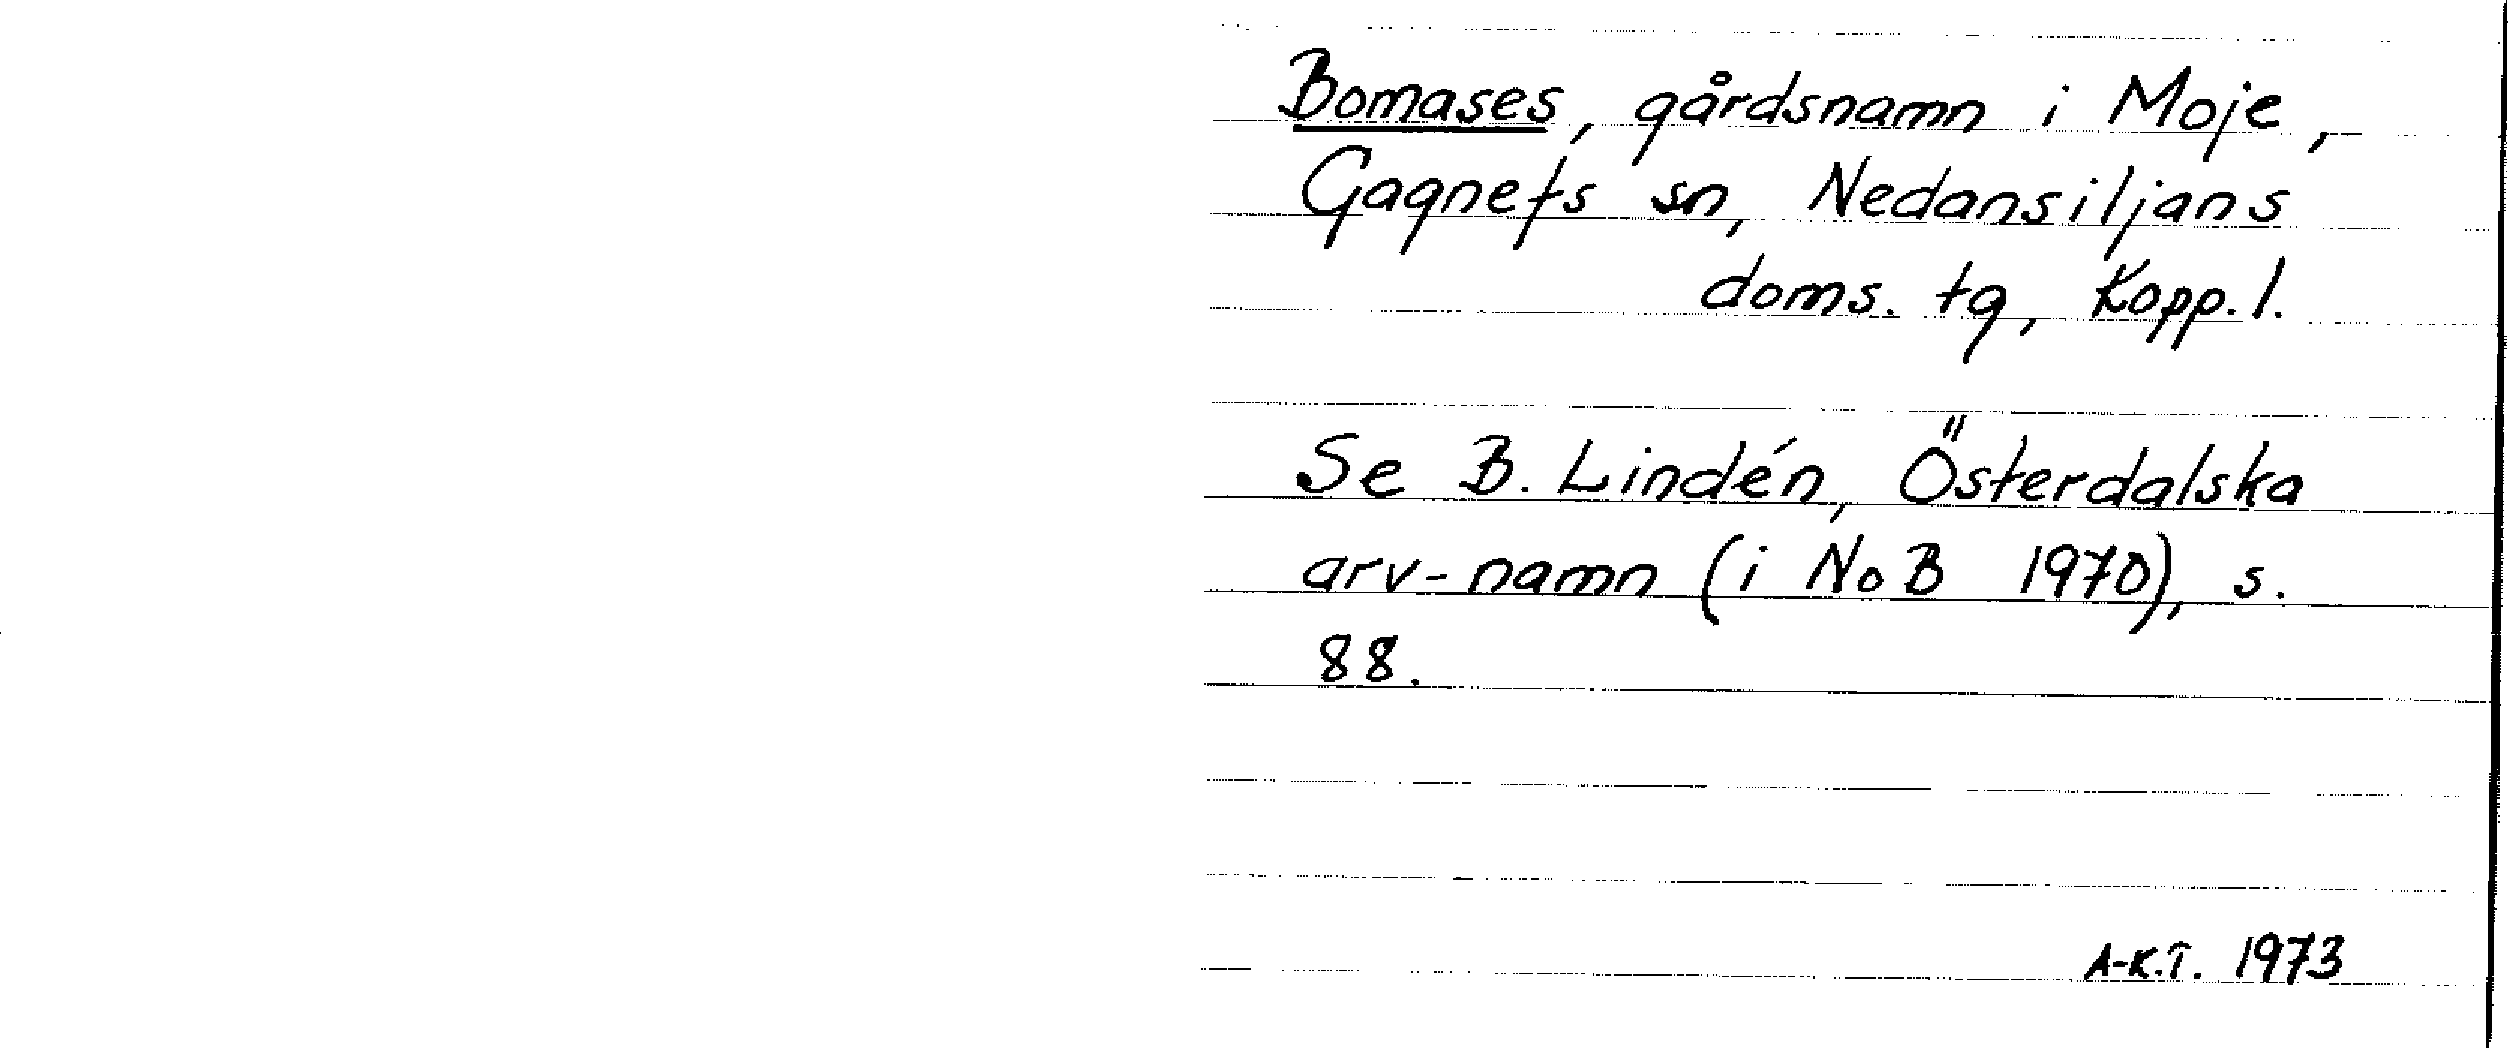 Bomases, gårdsnamn i Moje,
Gagnefs sn, Nedansiljans
doms. tg, Kopp. l.
Se B. Lindén, Österdalska
arv-namn (i NoB 1970), s.
88.
A-K.T. 1973